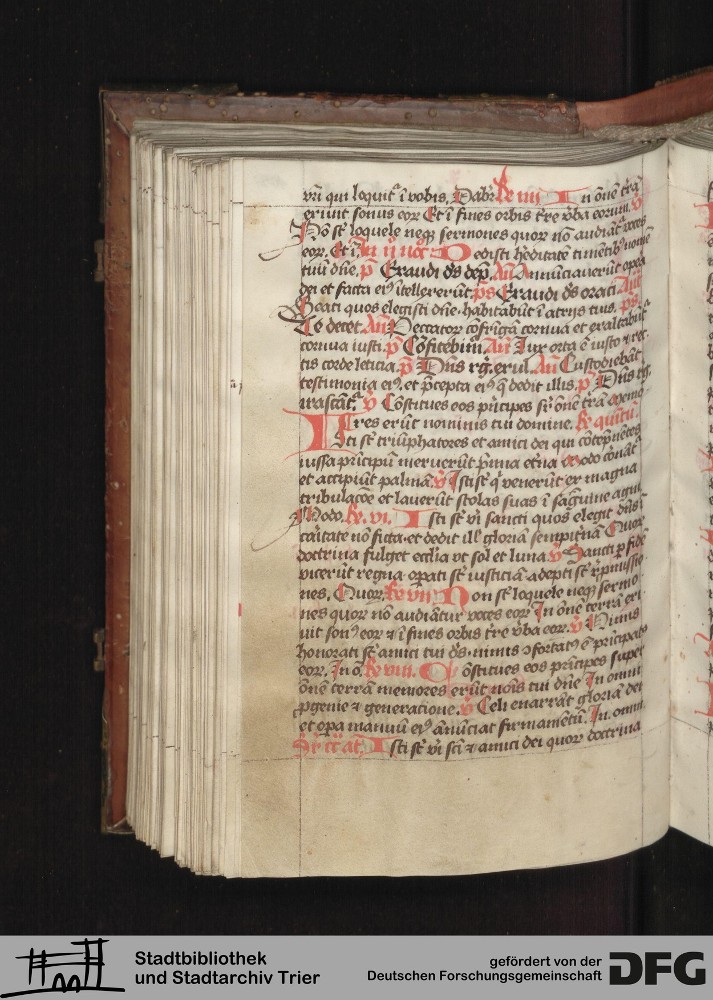 vrī qui loquit᷑ ī vobis, Dabit̄ Re iiii In ōnē trā
erunt sonus eoꝝ Et ī fines orbis t̄re v̄ba eorum. ℣
Nō st̄ loquele neqꝫ sermones quoꝝ nō audiāt᷑ voces
eoꝝ. Et ī. In ii noc̄ Dedisti h̄editatē timētibꝰ nomē
tuū dn̄e. p̄ Exaudi d̄s dep̄. Añ Annūciaverūt opera
dei et facta eiꝰ ītellexerūt. ps Exaudi d̄s orac̄i Añ
Beati quos elegisti dn̄e. habitabūt ī atrijs tuis. ps.
Te decet. Añ Peccatoꝝ cōfrīgā cornua et exaltabūt᷑
cornua iusti. p̄ Cōfitebim̄. Añ Lux orta ē iusto ⁊ rec
tis corde leticia. p̄ Dn̄s rḡ. exul. Añ Custodiebāt
testimonia eiꝰ. et p̄cepta eiꝰ q̄ dedit illis. p̄ Dn̄s rḡ.
irascāt᷑. ℣ Cōstitues eos p̄ncipes sr̄ ōnē trā Memo
res erūt nominis tui domine. Re quītū.
Isti st̄ triūphatores et amici dei qui cōtēp̄nētes
iussa p̄ncipū meruerūt p̄mia et̄na Modo coronāt᷑
et accipiūt palmā. ℣ Isti st̄ q̄ venerūt ex magna
tribulacōe et lauerūt stolas suas ī sāguine agni
Modo. Re. vi. Isti st̄ vi sancti quos elegit dn̄s ī
caritate nō ficta. et dedit ill̄ gloriā sempit̄nā Quoꝝ
doctrina fulget ecc̄lia vt sol et luna. ℣ Sancti ꝑ fidē
vicerūt regna opati st̄ iusticiā adepti st̄ rep̄missio
nes, Quoꝝ. Re vii Non st̄ loquele neqꝫ sermo
nes quoꝝ non audiātur voces eoꝝ In ōnē terrā exi
uit sonꝰ eoꝝ ⁊ ī fines orbis t̄re v̄ba eoꝝ. ℣ Nimis
honorati st̄ amici tui d̄s. nimis ꝯfortatꝰ ē p̄ncipatꝰ
eoꝝ. In ō. Re viii. Cōstitues eos prīcipes super
ōnē terrā memores erūt noīs tui dn̄e In omni
ꝓgenie ⁊ generatione. ℣ Celi enarrāt gloriā dei
et opa manuū eiꝰ ānūciat firmamētū. In omni
Isti st̄ vi sc̄i ⁊ amici dei quoꝝ doctrina
Stadtbibliothek
und Stadtarchiv Trier
gefördert von der
Deutschen Forschungsgemeinschaft DFG